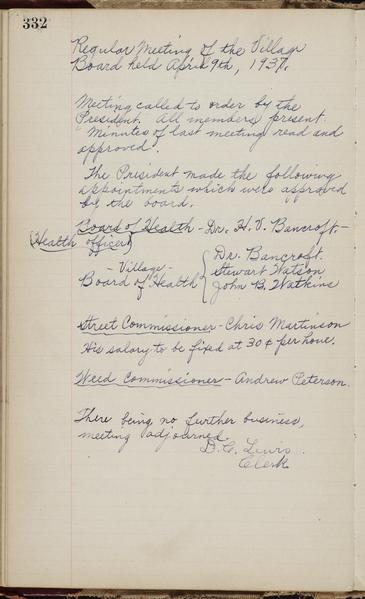 332
Regular Meeting of the Village
Board held April 9th, 1937.
Meeting called to order by the
President. All members present.
Minutes of last meeting read and
approved.
The President made the following
appointments which were approved
by the board.
Board of Health - Dr. H. V. Bancroft. -
(Health officer)
- Village -
Board of Health { Dr. Bancroft.
Stewart Watson
John B. Watkins
Street Commissioner - Chris Martinson
His salary to be fixed at 30¢ per hour.
Weed Commissioner - Andrew Peterson.
There being no further business,
meeting adjourned.
B. C. Lewis.
Clerk